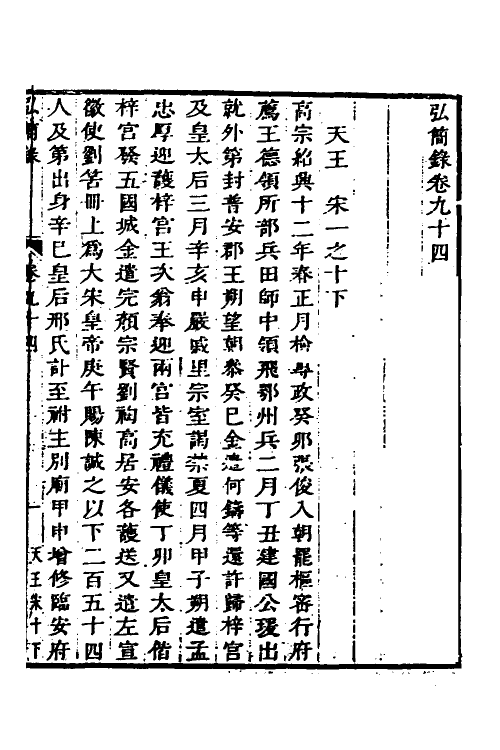 弘簡錄卷九十四
天王　宋一之十下
高宗紹興十二年春正月檜專政癸卯張俊入朝罷樞密行府
薦王德領所部兵田師中領飛鄂州兵二月丁丑建國公瑗出
就外第封普安郡王朔望朝參癸巳金遣何鑄等還許歸梓宮
及皇太后三月辛亥申嚴戚里宗室謁禁夏四月甲子朔遣孟
忠厚迎護梓宮王次翁奉迎兩宮皆充禮儀使丁卯皇太后偕
梓宮發五國城金遣完顏宗賢劉祹高居安各護送又遣左宣
徽使劉筈冊上爲大宋皇帝庚午賜陳誠之以下二百五十四
人及第出身辛巳皇后邢氏訃至祔主別廟甲申增修臨安府
弘簡錄
卷九十四
一
天王宋十下